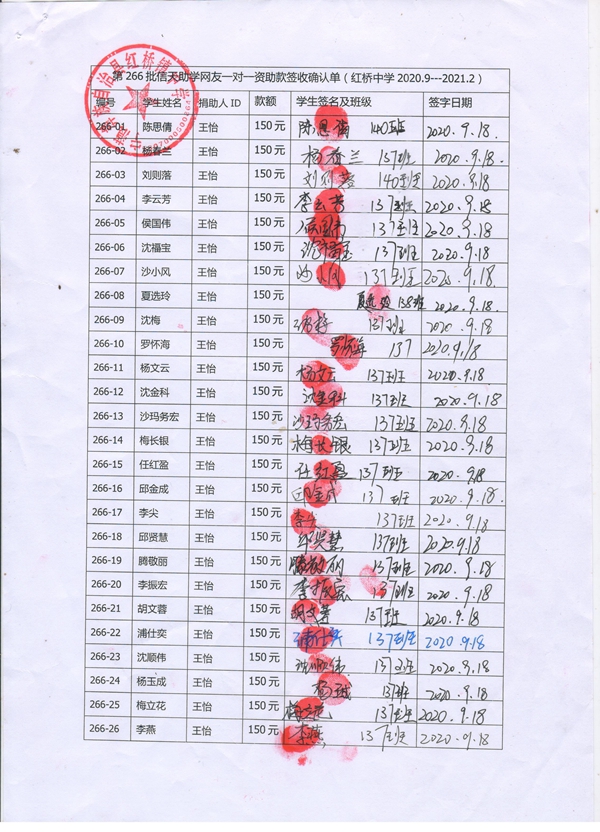 第266批信天助学网友一对一资助款签收确认单（红桥中学2020.9---2021.2）
编号 学生姓名 捐助人ID 款额 学生签名及班级 签字日期
266-01 陈思倩 王怡 150元 陈思倩 140班 2020.9.18.
266-02 杨春兰 王怡 150元 杨春兰 137班 2020.9.18.
266-03 刘则落 王怡 150元 刘则落 140班 2020.9.18
266-04 李云芳 王怡 150元 李云芳 137班 2020.9.18
266-05 侯国伟 王怡 150元 侯国伟 137班 2020.9.18.
266-06 沈福宝 王怡 150元 沈福宝 137班 2020.9.18.
266-07 沙小风 王怡 150元 沙小风 137班 2020.9.18.
266-08 夏选玲 王怡 150元 夏选玲 138班 2020.9.18.
266-09 沈梅 王怡 150元 沈梅 137班 2020.9.18
266-10 罗怀海 王怡 150元 罗怀海 137 2020.9.18
266-11 杨文云 王怡 150元 杨文云 137班 2020.9.18.
266-12 沈金科 王怡 150元 沈金科 137班 2020.9.18.
266-13 沙玛务宏 王怡 150元 沙玛务宏 137班 2020.9.18.
266-14 梅长银 王怡 150元 梅长银 137班 2020.9.18.
266-15 任红盈 王怡 150元 任红盈 137班 2020.9.18
266-16 邱金成 王怡 150元 邱金成 137班 2020.9.18.
266-17 李尖 王怡 150元 李尖 137班 2020.9.18
266-18 邱贤慧 王怡 150元 邱贤慧 137班 2020.9.18
266-19 腾敬丽 王怡 150元 腾敬丽 137班 2020.9.18.
266-20 李振宏 王怡 150元 李振宏 137班 2020.9.18.
266-21 胡文蓉 王怡 150元 胡文蓉 137班 2020.9.18.
266-22 浦仕奕 王怡 150元 浦仕奕 137班 2020.9.18
266-23 沈顺伟 王怡 150元 沈顺伟 137班 2020.9.18
266-24 杨玉成 王怡 150元 杨 137班 2020.9.18
266-25 梅立花 王怡 150元 梅立花 137班 2020.9.18
266-26 李燕 王怡 150元 李燕 137班 2020.9.18